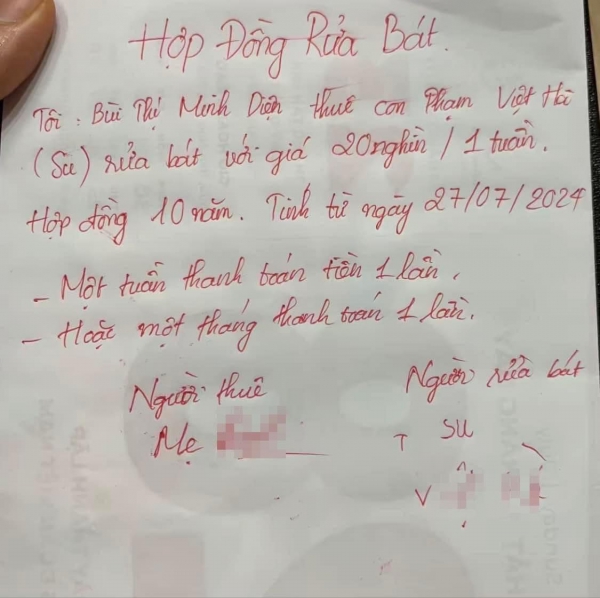 Hợp Đồng Rửa Bát.
Tôi: Bùi Thị Minh Diện thuê con Phạm Việt Hà
(Su) rửa bát với giá 20 nghìn / 1 tuần.
Hợp đồng 10 năm. Tính từ ngày 27/07/2024
- Một tuần thanh toán tiền 1 lần.
- Hoặc một tháng thanh toán 1 lần.
Người thuê
Mẹ
Người rửa bát
SU